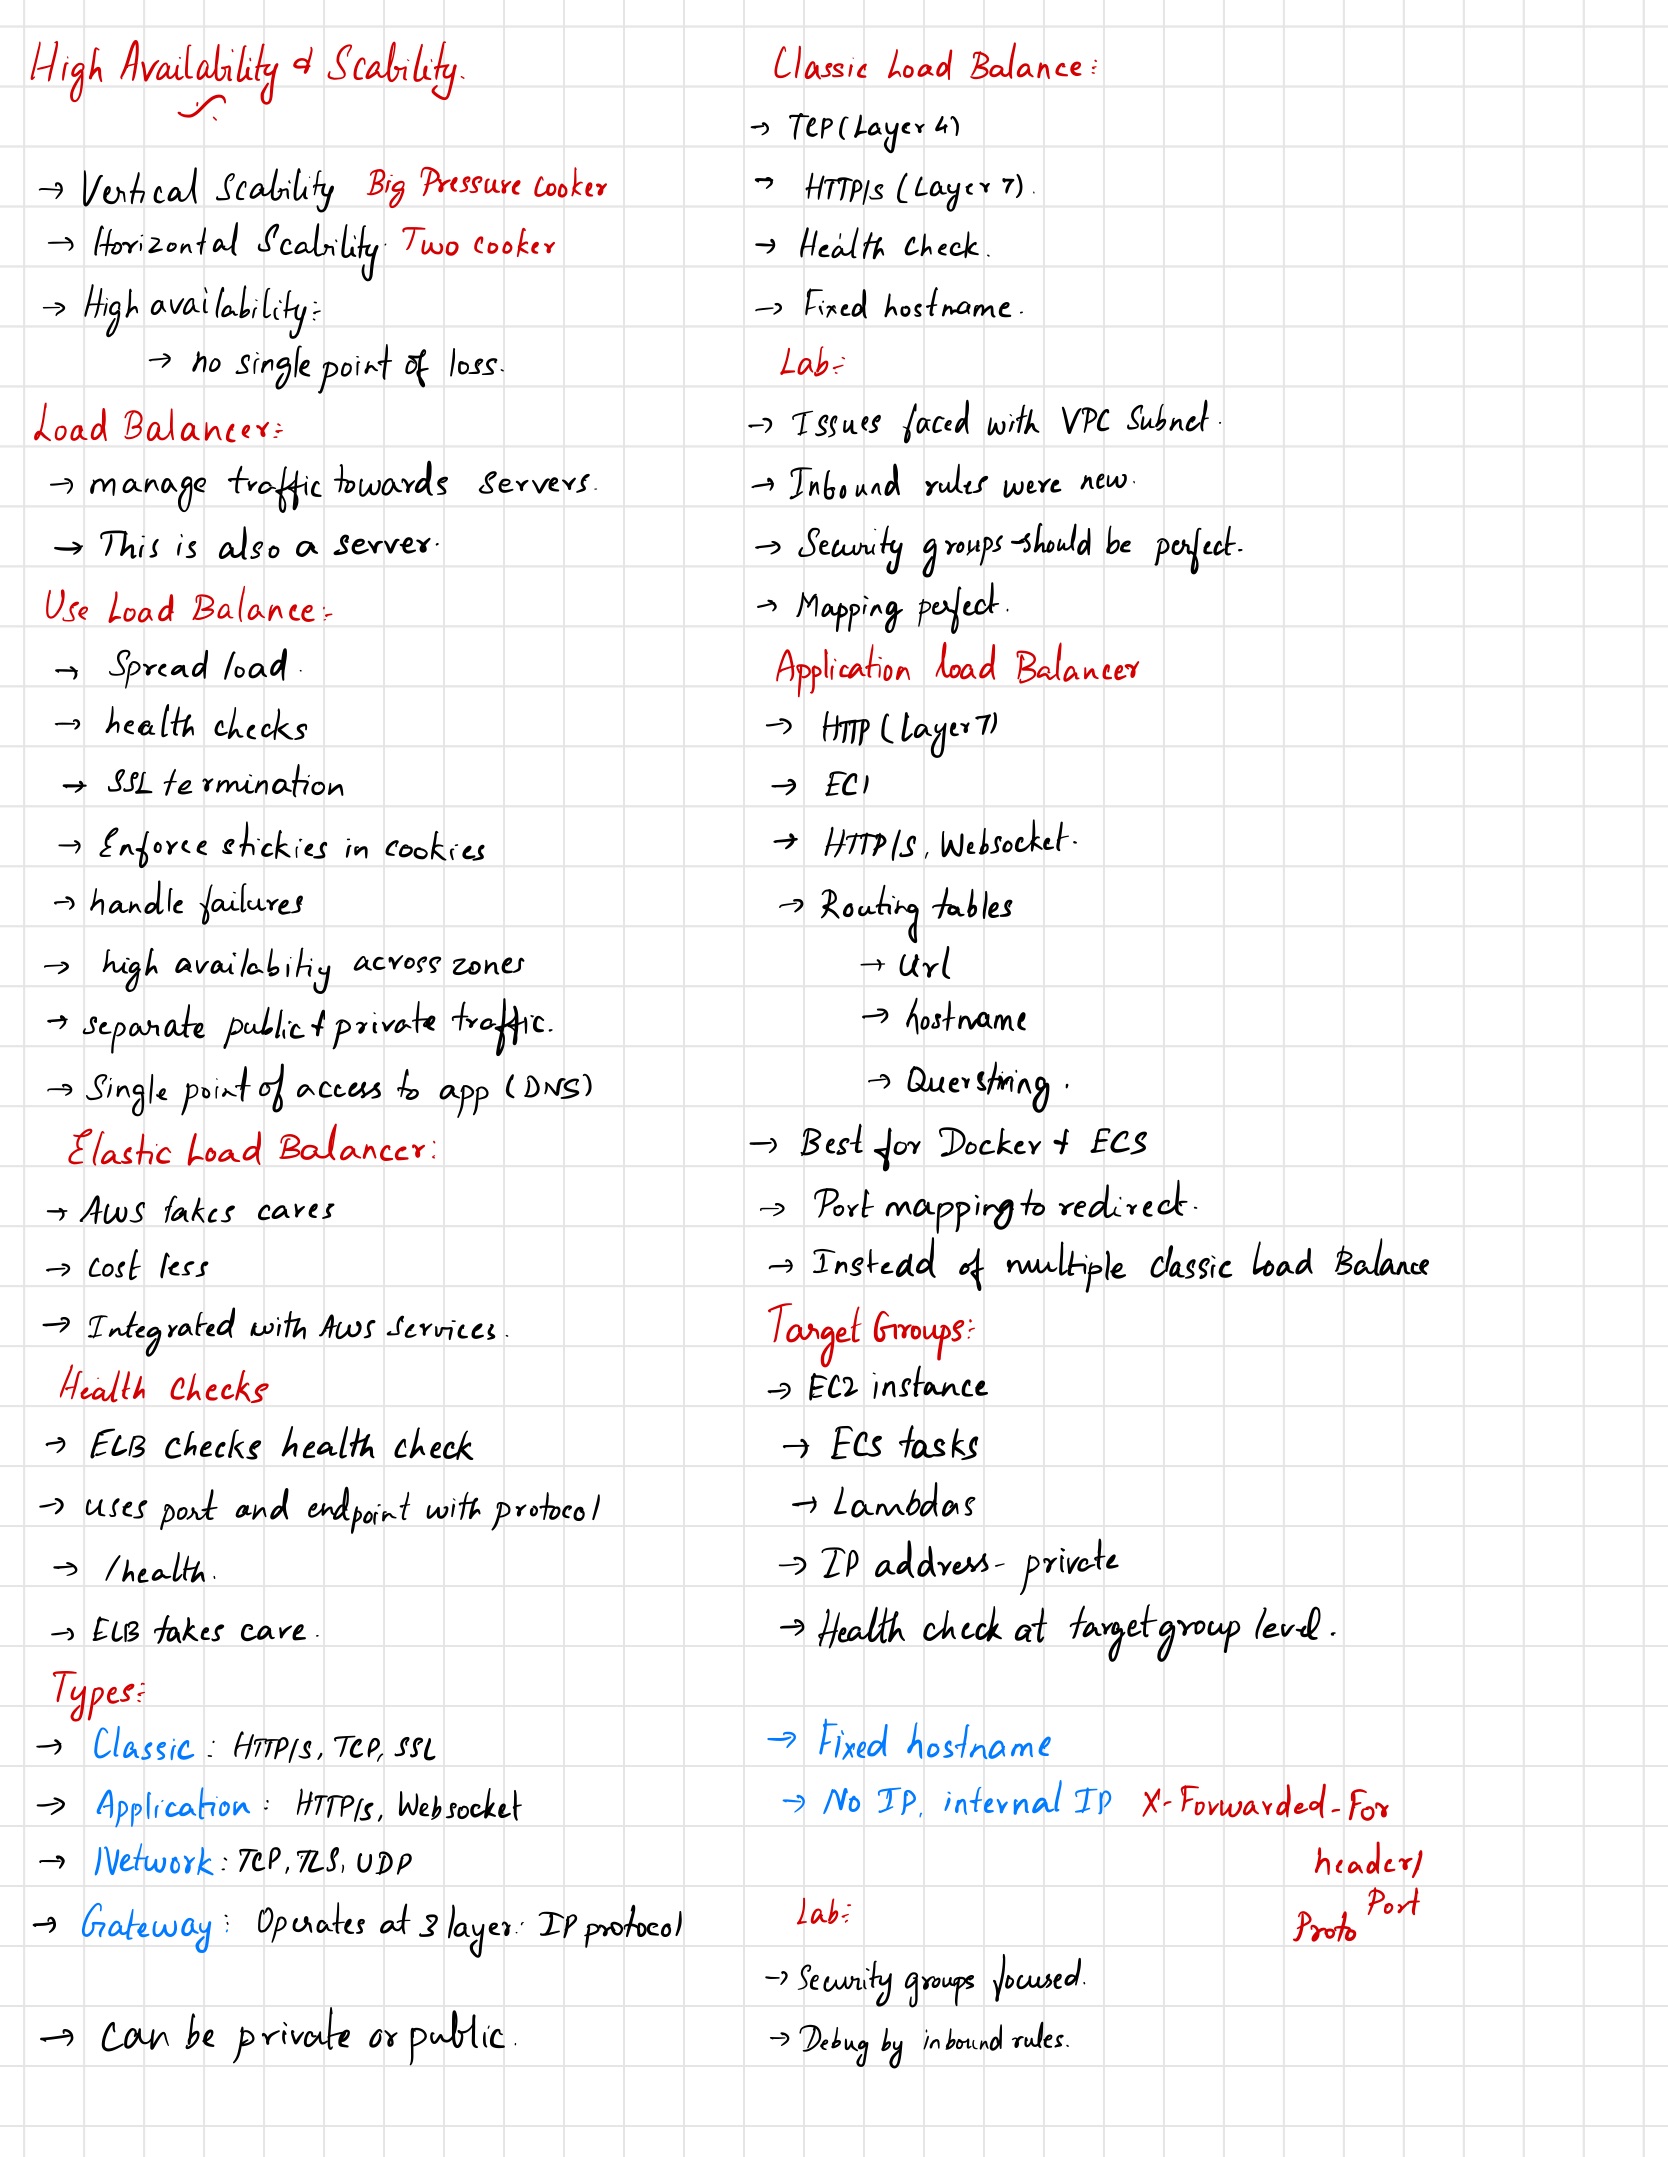 High Availability & Scability.
→ Vertical Scability Big Pressure Cooker
→ Horizontal Scability Two Cooker
→ High availability:-
→ no single point of loss.
Load Balancer:-
→ manage traffic towards servers.
→ This is also a server.
Use Load Balance:-
→ Spread load.
→ health checks
→ SSL termination
→ Enforce stickies in cookies
→ handle failures
→ high availabitiy across zones
→ separate public & private traffic.
→ Single point of access to app (DNS)
Elastic Load Balancer:
→ AWS takes cares
→ cost less
→ Integrated with AWS Services.
Health Checks
→ ELB checks health check
→ uses port and endpoint with protocol
→ /health.
→ ELB takes care.
Types:-
→ Classic: HTTP/S, TCP, SSL
→ Application: HTTP/s, Websocket
→ Network: TCP, TLS, UDP
→ Gateway: Operates at 3 layer: IP protocol
→ Can be private or public.
Classic Load Balance:
→ TCP (Layer 4)
→ HTTP/s (Layer 7).
→ Health check.
→ Fixed hostname.
Lab:-
→ Issues faced with VPC Subnet.
→ Inbound rules were new.
→ Security groups should be perfect.
→ Mapping perfect.
Application load Balancer
→ HTTP (Layer 7)
→ EC1
→ HTTP/S, Websocket.
→ Routing tables
→ Url
→ hostname
→ Querstring.
→ Best for Docker & ECS
→ Port mapping to redirect.
→ Instedd of multiple classic load Balance
Target Groups:-
→ EC2 instance
→ ECS tasks
→ Lambdas
→ IP address - private
→ Health check at target group level.
→ Fixed hostname
→ No IP, internal IP X-Forwarded-For
header/
Port
Proto
Lab:-
→ Security groups focused.
→ Debug by inbound rules.